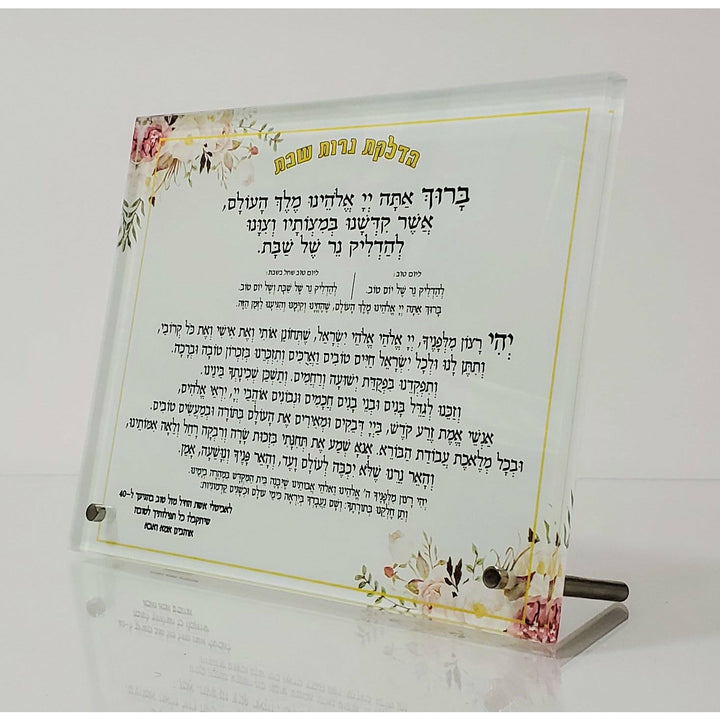 הדלקת נרות שבת
בָּרוּךְ אַתָּה יְיָ אֱלֹהֵינוּ מֶלֶךְ הָעוֹלָם,
אֲשֶׁר קִדְּשָׁנוּ בְּמִצְוֹתָיו וְצִוָּנוּ
לְהַדְלִיק נֵר שֶׁל שַׁבָּת.
ליום טוב:
לְהַדְלִיק נֵר שֶׁל יוֹם טוֹב.
ליום טוב שחל בשבת:
לְהַדְלִיק נֵר שֶׁל שַׁבָּת וְשֶׁל יוֹם טוֹב.
בָּרוּךְ אַתָּה יְיָ אֱלֹהֵינוּ מֶלֶךְ הָעוֹלָם, שֶׁהֶחֱיָנוּ וְקִיְּמָנוּ וְהִגִּיעָנוּ לַזְּמַן הַזֶּה.
יְהִי רָצוֹן מִלְּפָנֶיךָ, יְיָ אֱלֹהַי אֱלֹהֵי יִשְׂרָאֵל, שֶׁתְּחוֹנֵן אוֹתִי וְאֶת אִישִׁי וְאֶת כֹּל קְרוֹבַי,
וְתִתֶּן לָנוּ וּלְכָל יִשְׂרָאֵל חַיִּים טוֹבִים וַאֲרֻכִּים וְתִזְכְּרֵנוּ בְּזִכְרוֹן טוֹבָה וּבְרָכָה.
וְתִפְקְדֵנוּ בִּפְקֻדַּת יְשׁוּעָה וְרַחֲמִים. וְתַשְׁכֵּן שְׁכִינָתְךָ בֵּינֵינוּ.
וְזַכֵּנוּ לְגַדֵּל בָּנִים וּבְנֵי בָנִים חֲכָמִים וּנְבוֹנִים אוֹהֲבֵי יְיָ, יִרְאֵי אֱלֹהִים,
אַנְשֵׁי אֱמֶת זֶרַע קֹדֶשׁ, בַּיְיָ דְּבֵקִים וּמְאִירִים אֶת הָעוֹלָם בְּתוֹרָה וּבְמַעֲשִׂים טוֹבִים.
וּבְכָל מְלֶאכֶת עֲבוֹדַת הַבּוֹרֵא. אָנָּא שְׁמַע אֶת תְּחִנָּתִי בִּזְכוּת שָׂרָה וְרִבְקָה רָחֵל וְלֵאָה אִמּוֹתֵינוּ,
וְהָאֵר נֵרֵנוּ שֶׁלֹּא יִכְבֶּה לְעוֹלָם וָעֶד, וְהָאֵר פָּנֶיךָ וְנִוָּשֵׁעָה, אָמֵן.
יְהִי רָצוֹן מִלְּפָנֶיךָ ה' אֱלֹהֵינוּ וֵאלֹהֵי אֲבוֹתֵינוּ שֶׁיִּבָּנֶה בֵּית הַמִּקְדָּשׁ בִּמְהֵרָה בְיָמֵינוּ.
וְתֵן חֶלְקֵנוּ בְּתוֹרָתֶךָ: וְשָׁם נַעֲבָדְךָ בְּיִרְאָה כִּימֵי עוֹלָם וּכְשָׁנִים קַדְמוֹנִיּוֹת:
לאביטל אשת חייל מזל טוב בהגיעך ל-40
שיתקבלו כל תפילותייך לטובה
אוהבים אמא ואבא